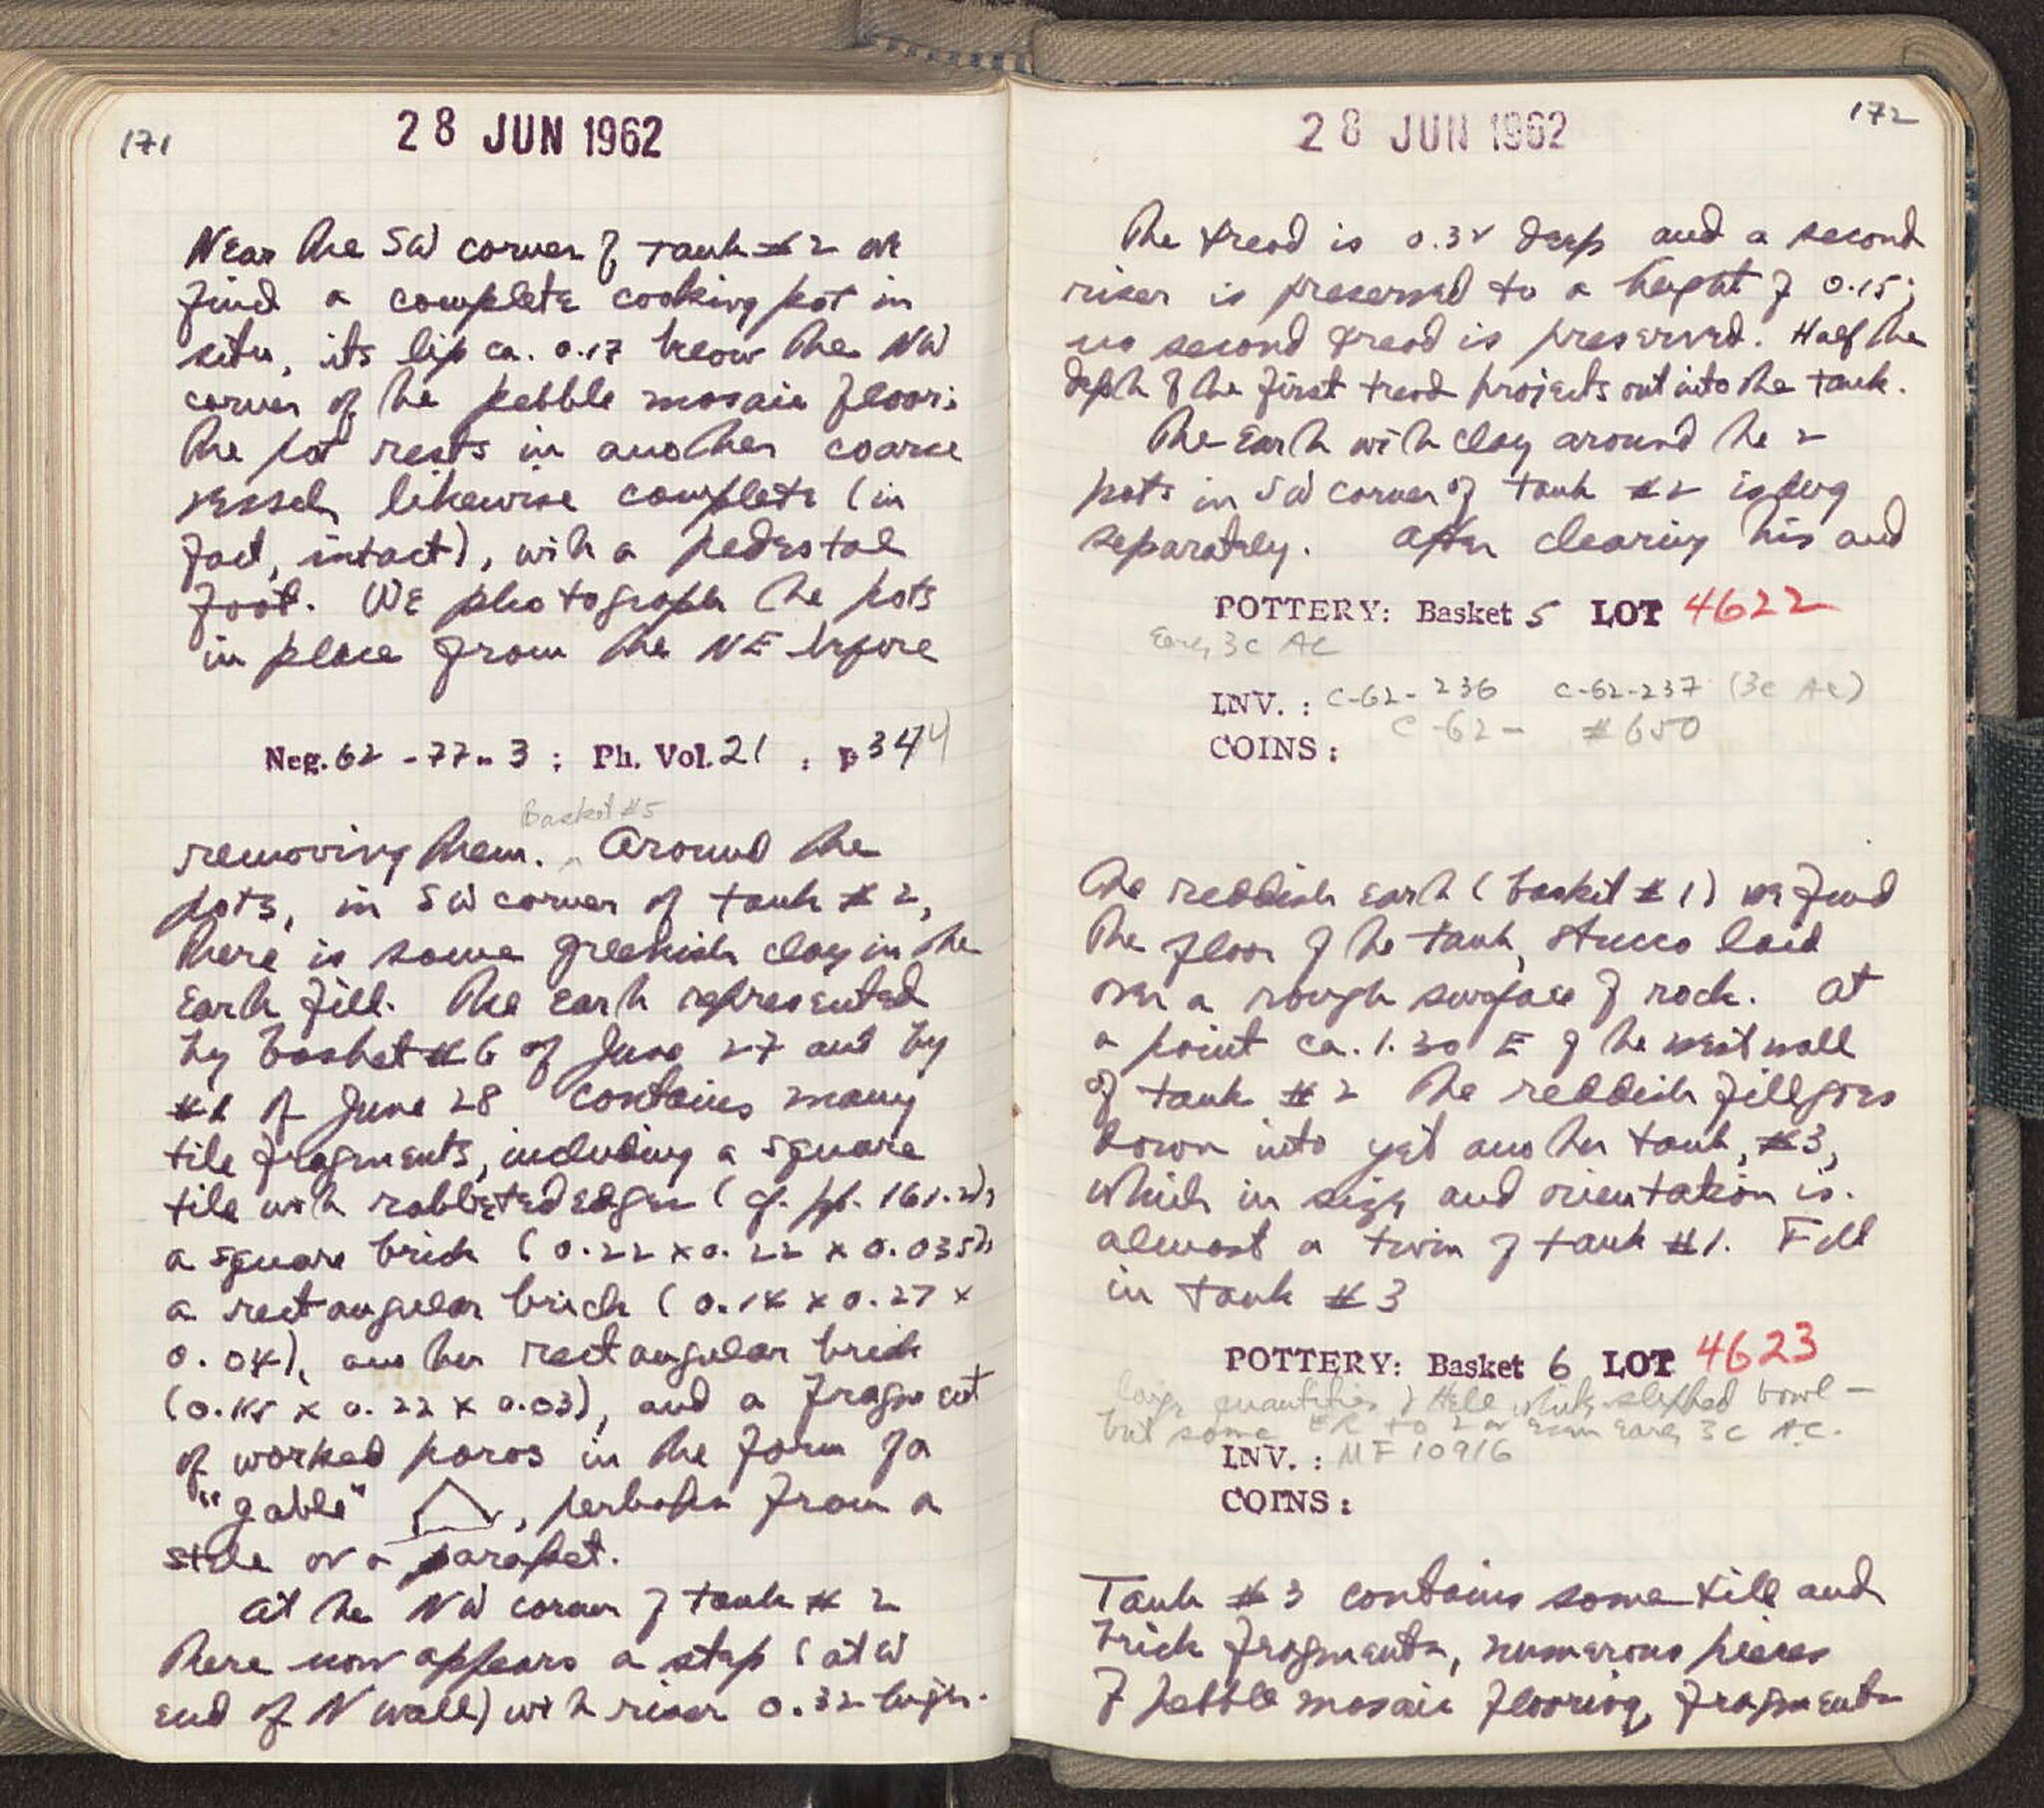 171
28 JUN 1962
Near the SW corner of tank #2 we
find a complete cooking pot in
situ, its lip ca. 0.17 below the NW
corner of the pebble mosaic floor;
the pot rests in another coarse
vessel, likewise complete (in
fact, intact), with a pedestal
foot. We photograph the pots
in place from the NE before
Neg. 62 - 77 - 3 ; Ph. Vol. 21 , p 344
Basket #5
removing them. ^ Around the
pots, in SW corner of tank #2,
there is some greenish clay in the
earth fill. The earth represented
by basket #6 of June 27 and by
#1 of June 28 contains many
tile fragments, including a square
tile with rabbeted edges (cf. pp. 161.2),
a square brick (0.22 x 0.22 x 0.035),
a rectangular brick (0.14 x 0.27 x
0.04), another rectangular brick
(0.15 x 0.22 x 0.03), and a fragment
of worked poros in the form of a
"gable" , perhaps from a
stele or a parapet.
At the NW corner of tank #2
there now appears a step (at W
end of N wall) with riser 0.32 high.
172
28 JUN 1962
The tread is 0.32 deep and a second
riser is preserved to a height of 0.15;
no second tread is preserved. Half the
depth of the first tread projects out into the tank.
The earth with clay around the 2
pots in SW corner of tank #2 is dug
separately. After clearing this and
POTTERY: Basket 5 LOT 4622
Early 3c AC
INV. : C-62-236 C-62-237 (3c AC)
C-62- #650
COINS :
the reddish earth (basket #1) we find
the floor of the tank, stucco laid
over a rough surface of rock. At
a point ca. 1.30 E of the west wall
of tank #2 the reddish fill goes
down into yet another tank, #3,
which in size and orientation is
almost a twin of tank #1. Fill
in tank #3
POTTERY: Basket 6 LOT 4623
large quantities of Hell white-slipped bowl -
but some ER to 2 or even early 3c AC.
INV. : MF 10916
COINS :
Tank #3 contains some tile and
brick fragments, numerous pieces
of pebble mosaic flooring, fragments